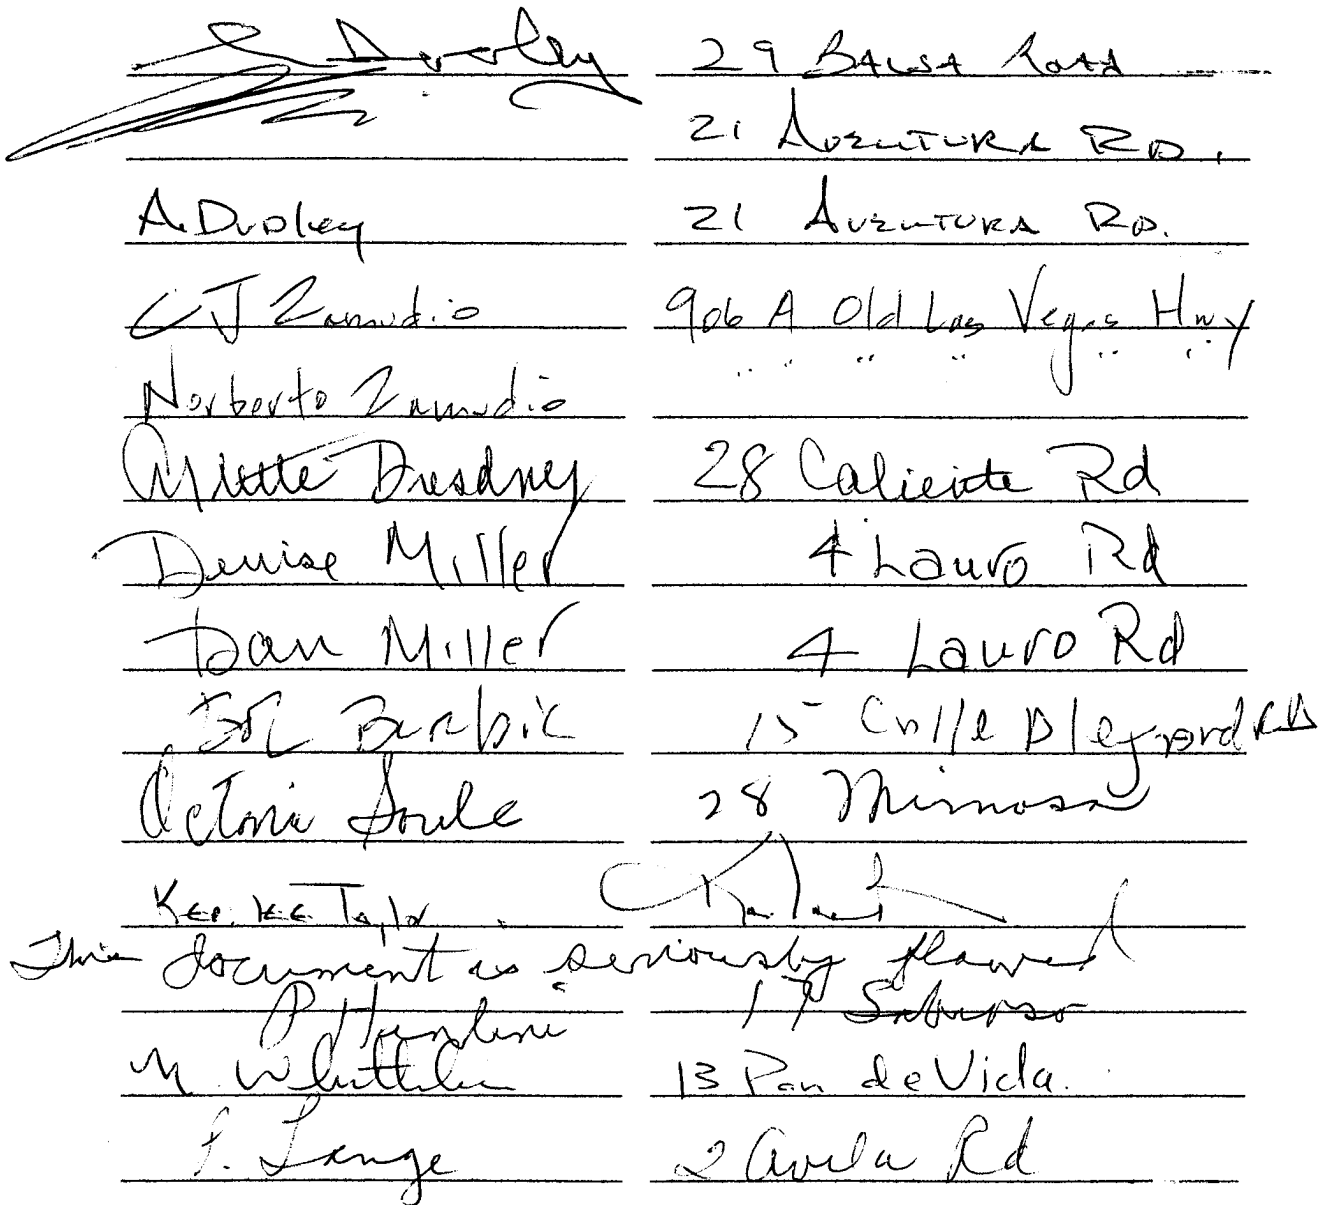 Dudley 29 BALSA ROAD
21 AVENTURA RD.
A. Dudley 21 AVENTURA RD.
CJ Zamudio 906 A Old Las Vegas Hwy
Norberto Zamudio " " " " "
Dresdney 28 Caliente Rd
Denise Miller 4 Lauro Rd
Dan Miller 4 Lauro Rd
15 Calle
Soule 28 Mimosa
Taylor
This document is seriously flawed
P 17 Sabroso
M. 13 Pan de Vida
Lange 2 Avila Rd